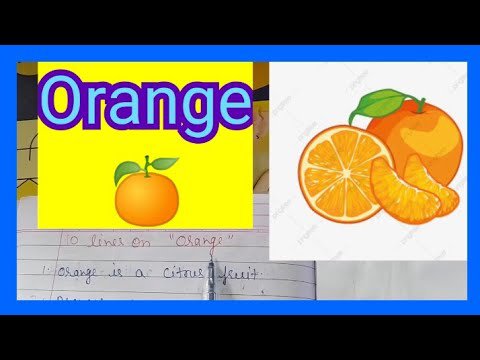 Orange
10 lines on "Orange"
1. Orange is a citrus fruit.